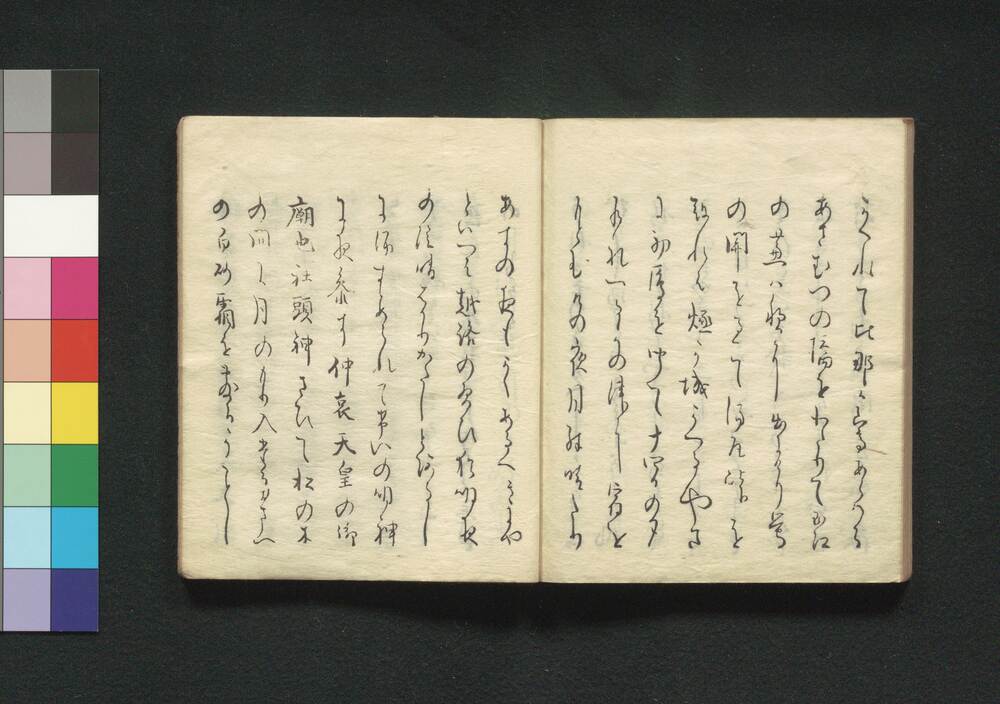 かくれて比那か嵩あらはる
あさむつの橋をわたりて玉江
の蘆は穂に出にけり鴬
の関を過て湯尾峠を
越れは燧か城かへるやま
に初鴈を聞て十四日の夕
くれつるかの津に宿を
もとむその夜月殊晴たり
あすの夜もかくあるへきにや
といへは越路のならひ猶明夜
の陰晴はかりかたしとあるし
に酒すゝめられてけいの明神
に夜参す仲哀天皇の御
廟也社頭神さひて松の木
の間に月のもり入たるおまへ
の白砂霜を敷るかことし